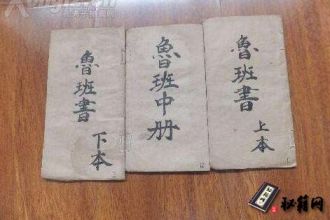 魯班書
上本
魯班中册
魯班書
下本
秘籍网